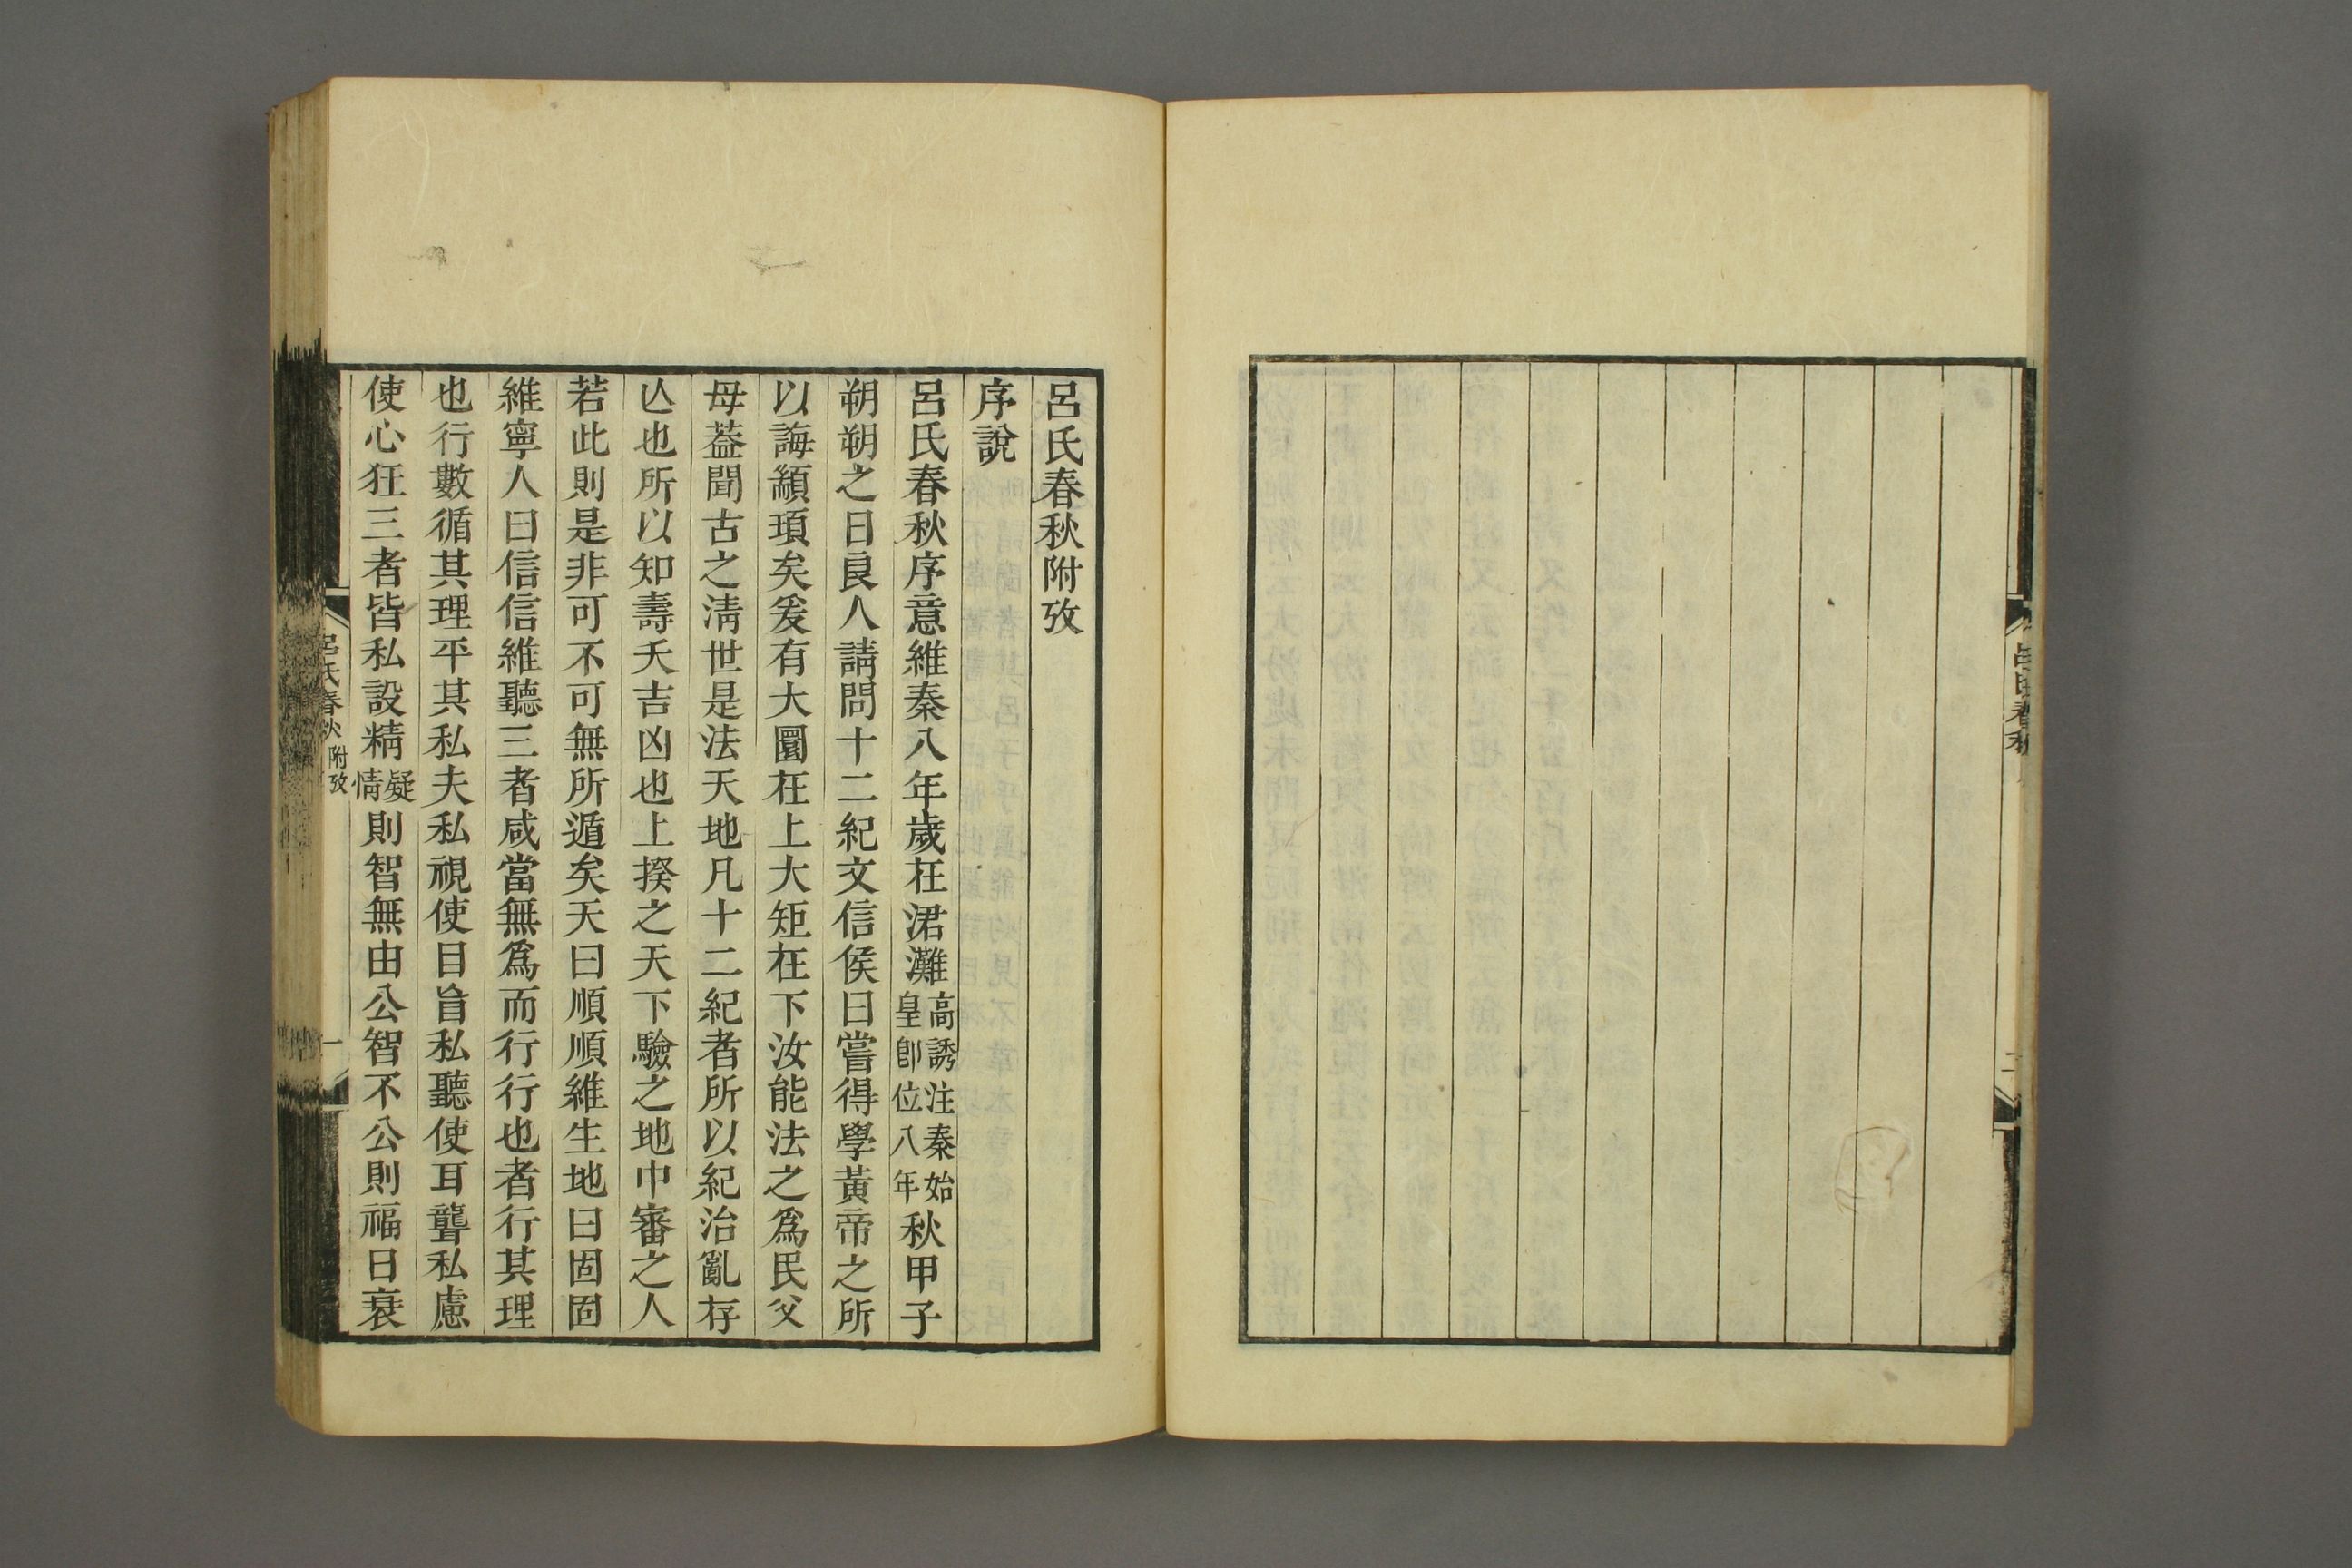 呂氏春秋
呂氏春秋附攷
序說
呂氏春秋序意維秦八年歲在涒灘高誘注秦始皇卽位八年秋甲子
朔朔之日良人請問十二紀文信侯曰嘗得學黃帝之所
以誨顓頊矣爰有大圜在上大矩在下汝能法之爲民父
母葢聞古之淸世是法天地凡十二紀者所以紀治亂存
亾也所以知壽夭吉凶也上揆之天下驗之地中審之人
若此則是非可不可無所遁矣天曰順順維生地曰固固
維寧人曰信信維聽三者咸當無爲而行行也者行其理
也行數循其理平其私夫私視使目盲私聽使耳聾私慮
使心狂三者皆私設精疑情則智無由公智不公則福日衰
呂氏春秋 附攷 一